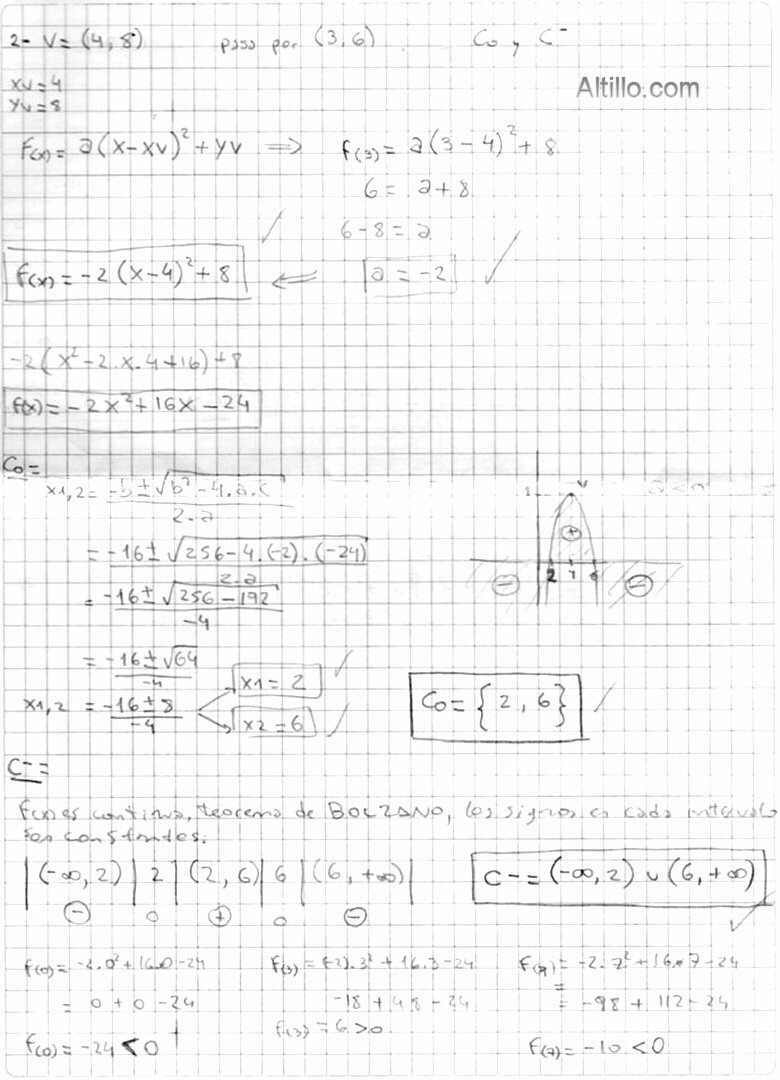 2- V = (4, 8) pasa por (3, 6) C₀ y C⁻
Altillo.com
xv = 4
yv = 8
F(x) = a(x-xv)² + yv ⟹ f(3) = a(3-4)² + 8
6 = a + 8
6-8 = a
f(x) = -2(x-4)² + 8 ⟸ a = -2
-2(x²-2.x.4+16)+8
f(x) = -2x² + 16x - 24
C₀ =
x1,2 = -b ± √b² - 4.a.c / 2.a
= -16 ± √256-4.(-2).(-24) / 2.a
= -16 ± √256-192 / -4
= -16 ± √64 / -4
x1,2 = -16 ± 8 / -4
x1 = 2
x2 = 6
V
+
2 4 6
- -
C₀ = {2, 6}
C- =
f(x) es continua, teorema de BOLZANO, los signos en cada intervalo
son constantes.
| (-∞, 2) | 2 | (2, 6) | 6 | (6, +∞) |
- 0 + 0 -
C- = (-∞, 2) ∪ (6, +∞)
f(0) = -2.0² + 16.0 - 24 f(3) = (-2).3² + 16.3 - 24 f(7) = -2.7² + 16.7 - 24
= 0 + 0 - 24 -18 + 48 - 24 = -98 + 112 - 24
f(0) = -24 < 0 f(3) = 6 > 0. f(7) = -10 < 0